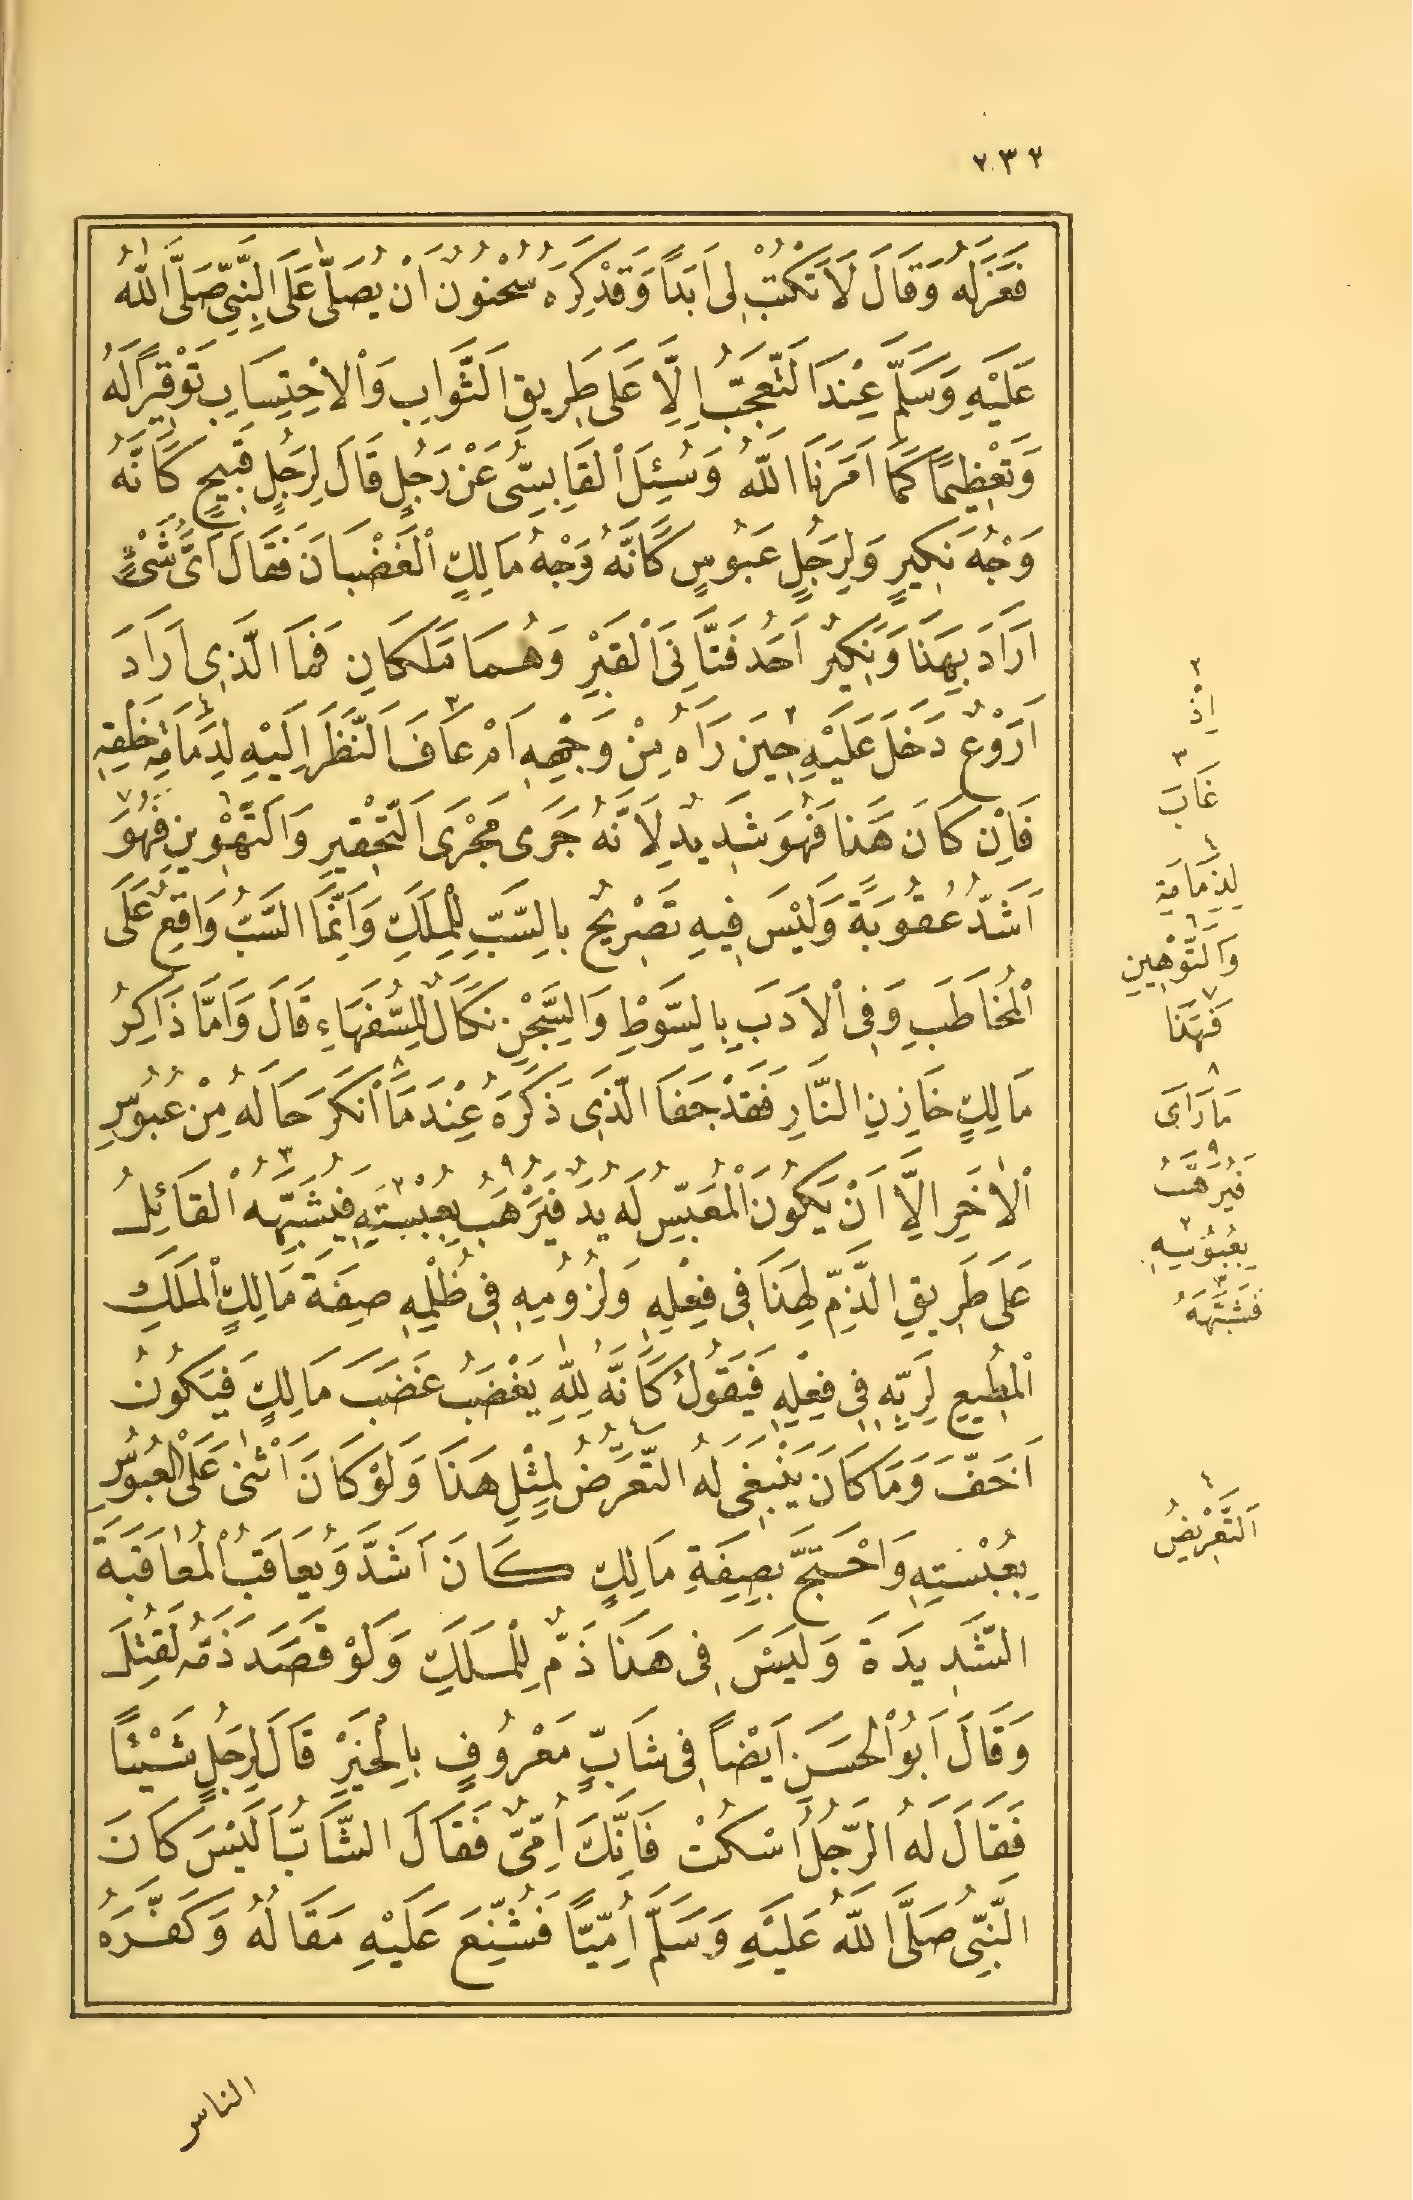 ٢٣٢
فَعَزَلَهُ وَقَالَ لَا تَكْتُبْ لِى اَبَدًا وَقَدْ كَرِهَ سُحْنُونٌ اَنْ يُصَلّٰى عَلَى النَّبِىِّ صَلَّى اللّٰهُ
عَلَيْهِ وَسَلَّمَ عِنْدَ التَّعَجُّبِ اِلَّا عَلَى طَرِيقِ الثَّوَابِ وَالْاِحْتِسَابِ تَوْقِيرًا لَهُ
وَتَعْظِيمًا كَمَا اَمَرَنَا اللّٰهُ وَسُئِلَ الْقَابِسِىُّ عَنْ رَجُلٍ قَالَ لِرَجُلٍ قَبِيحٍ كَاَنَّهُ
وَجْهُ نَكِيرٍ وَلِرَجُلٍ عَبُوسٍ كَاَنَّهُ وَجْهُ مَالِكٍ الْغَضْبَانَ فَقَالَ اَىُّ شَىْءٍ
اَرَادَ بِهَذَا وَنَكِيرٌ اَحَدُ فَتَّانَىِ الْقَبْرِ وَهُمَا مَلَكَانِ فَمَا الَّذِى اَرَادَ
اَرَوْعٌ دَخَلَ عَلَيْهِ حِينَ رَاٰهُ مِنْ وَجْهِهِ اَمْ عَافَ النَّظَرَ اِلَيْهِ لِدَمَامَةِ خَلْقِهِ
فَاِنْ كَانَ هَذَا فَهُوَ شَدِيدٌ لِاَنَّهُ جَرَى مَجْرَى التَّحْقِيرِ وَالتَّهْوِينِ فَهُوَ
اَشَدُّ عُقُوبَةً وَلَيْسَ فِيهِ تَصْرِيحٌ بِالسَّبِّ لِلْمَلَكِ وَاِنَّمَا السَّبُّ وَاقِعٌ عَلَى
الْمُخَاطَبِ وَفِى الْاَدَبِ بِالسَّوْطِ وَالسِّجْنِ نَكَالٌ لِلسُّفَهَاءِ قَالَ وَاَمَّا ذَاكِرُ
مَالِكٍ خَازِنِ النَّارِ فَقَدْ جَفَا الَّذِى ذَكَرَهُ عِنْدَ مَا اَنْكَرَ حَالَهُ مِنْ عُبُوسِ
الْاٰخَرِ اِلَّا اَنْ يَكُونَ الْمُعَبِّسُ لَهُ يَدٌ فَيُرْهَبُ بِعُبْسَتِهِ فَيُشَبِّهُهُ الْقَائِلُ
عَلَى طَرِيقِ الذَّمِّ لِهَذَا فِى فِعْلِهِ وَلُزُومِهِ فِى ظُلْمِهِ صِفَةَ مَالِكٍ الْمَلَكِ
الْمُطِيعِ لِرَبِّهِ فِى فِعْلِهِ فَيَقُولُ كَاَنَّهُ لِلّٰهِ يَغْضَبُ غَضَبَ مَالِكٍ فَيَكُونُ
اَخَفَّ وَمَا كَانَ يَنْبَغِى لَهُ التَّعَرُّضُ لِمِثْلِ هَذَا وَلَوْ كَانَ اَثْنٰى عَلَى الْعَبُوسِ
بِعُبْسَتِهِ وَاحْتَجَّ بِصِفَةِ مَالِكٍ كَانَ اَشَدَّ وَيُعَاقَبُ الْمُعَاقَبَةَ
الشَّدِيدَةَ وَلَيْسَ فِى هَذَا ذَمٌّ لِلْمَلَكِ وَلَوْ قَصَدَ ذَمَّهُ لَقُتِلَ
وَقَالَ اَبُو الْحَسَنِ اَيْضًا فِى شَابٍّ مَعْرُوفٍ بِالْخَيْرِ قَالَ لِرَجُلٍ شَيْئًا
فَقَالَ لَهُ الرَّجُلُ اُسْكُتْ فَاِنَّكَ اُمِّىٌّ فَقَالَ الشَّابُّ اَلَيْسَ كَانَ
النَّبِىُّ صَلَّى اللّٰهُ عَلَيْهِ وَسَلَّمَ اُمِّيًّا فَشُنِّعَ عَلَيْهِ مَقَالُهُ وَكَفَّرَهُ
٢
اِذْ
٣
غَابَ
٤
لِذَمَامَةِ
٦
وَالتَّوْهِينِ
٧
فَهَذَا
٨
مَا رَاَى
٩
فَيُرَهَّبُ
٢
بِعُبُوسِهِ
٣
فَشَبَّهَهُ
٤
اَلتَّعْرِيضُ
الناس